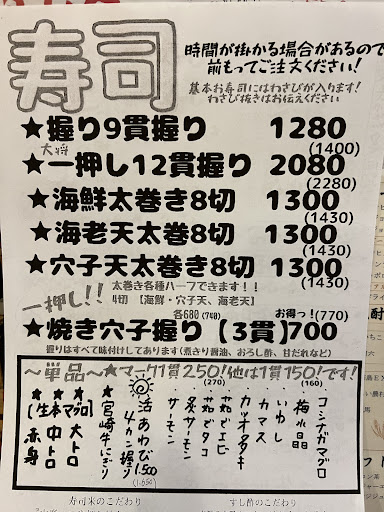 寿司
時間が掛かる場合があるので
前もってご注文ください!
基本お寿司にはわさびが入ります!
わさび抜きはお伝えください
★握り9貫握り 1280
(1400)
大将
★一押し12貫握り 2080
(2280)
★海鮮太巻き8切 1300
(1430)
★海老天太巻8切 1300
(1430)
★穴子天太巻き8切 1300
(1430)
太巻き各種ハーフできます!!
4切 【海鮮・穴子天、海老天】
各680 (748)
一押し!!
お得っ!(770)
★焼き穴子握り【3貫】700
握りはすべて味付けしてあります(煮きり醤油、おろし酢、甘だれなど)
〜単品〜★マーク1貫250!他は1貫150!です!
(270)
(160)
コシナガマグロ
梅水晶
いわし
カマス
カツオタタキ
茹でエビ
茹でタコ
炙サーモン
サーモン
活あわび 1.500
4カン握り (1.650)
★宮崎牛にぎり
【生本マグロ】
★大トロ
★中トロ
★赤身
寿司米のこだわり
すし酢のこだわり